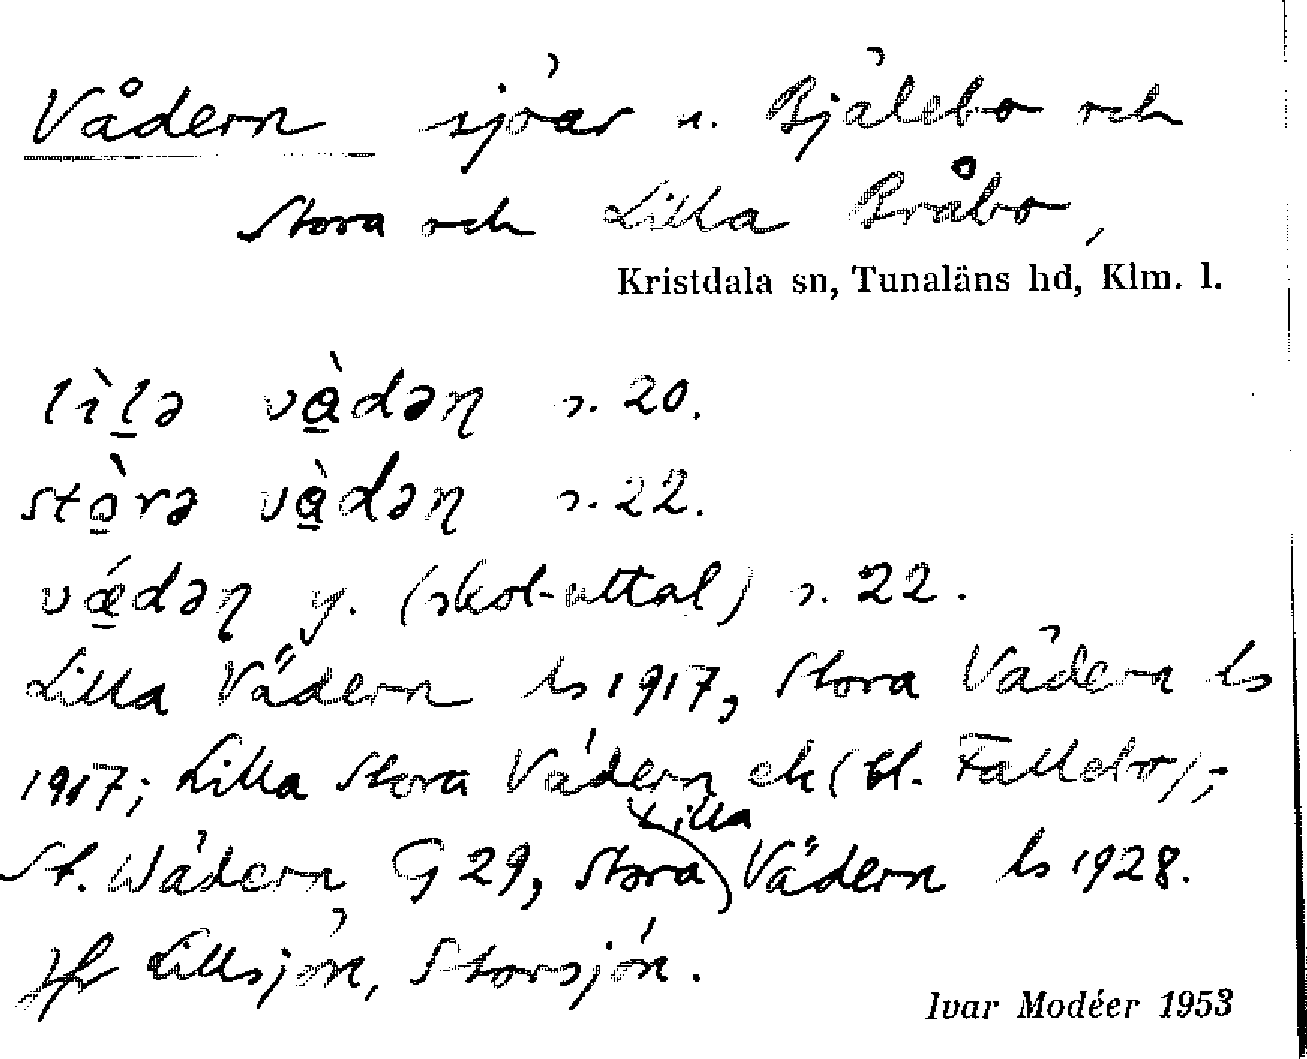 Vådern sjöar n. Bjälebo och
Stora och Lilla Bråbo,
Kristdala sn, Tunaläns hd, Klm. l.
lìlə và̱dən s. 20.
stò̱rə và̱dən s. 22.
vǽ̱dən y. (skol-uttal) s. 22.
Lilla Vädern ls 1917, Stora Vädern ls
1917; Lilla Stora Vädern ek (bl. Fallebo);
St. Wädern G 29, Stora Lilla Vädern ls 1928.
Jfr Lillsjön, Storsjön.
Ivar Modéer 1953